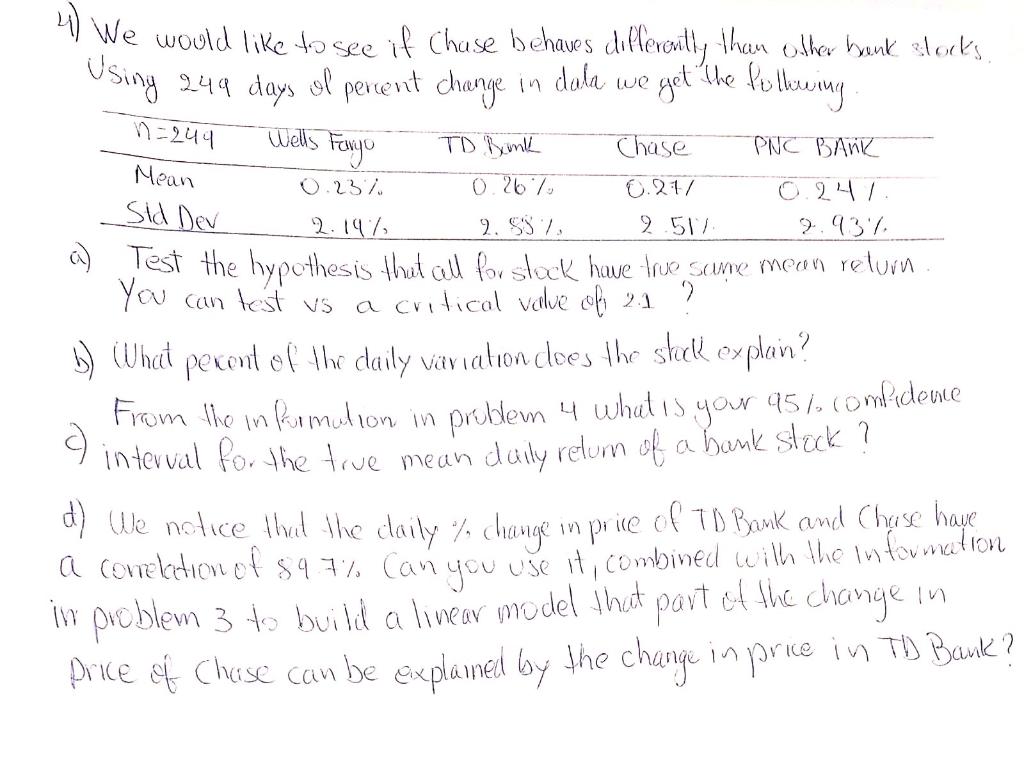 4) We would like to see if Chase behaves differently than other bank stocks.
Using 249 days of percent change in data we get the following.
n=249 Wells Fargo TD Bank Chase PNC BANK
Mean 0.23% 0.26% 0.27% 0.24%
Std Dev 2.19% 2.88% 2.51% 2.93%
a) Test the hypothesis that all for stock have true same mean return.
You can test vs a critical value of 2.1 ?
b) What percent of the daily variation does the stock explain?
From the information in problem 4 what is your 95% confidence
c) interval for the true mean daily return of a bank stock ?
d) We notice that the daily % change in price of TD Bank and Chase have
a correlation of 89.7% Can you use it, combined with the information
in problem 3 to build a linear model that part of the change in
price of Chase can be explained by the change in price in TD Bank?